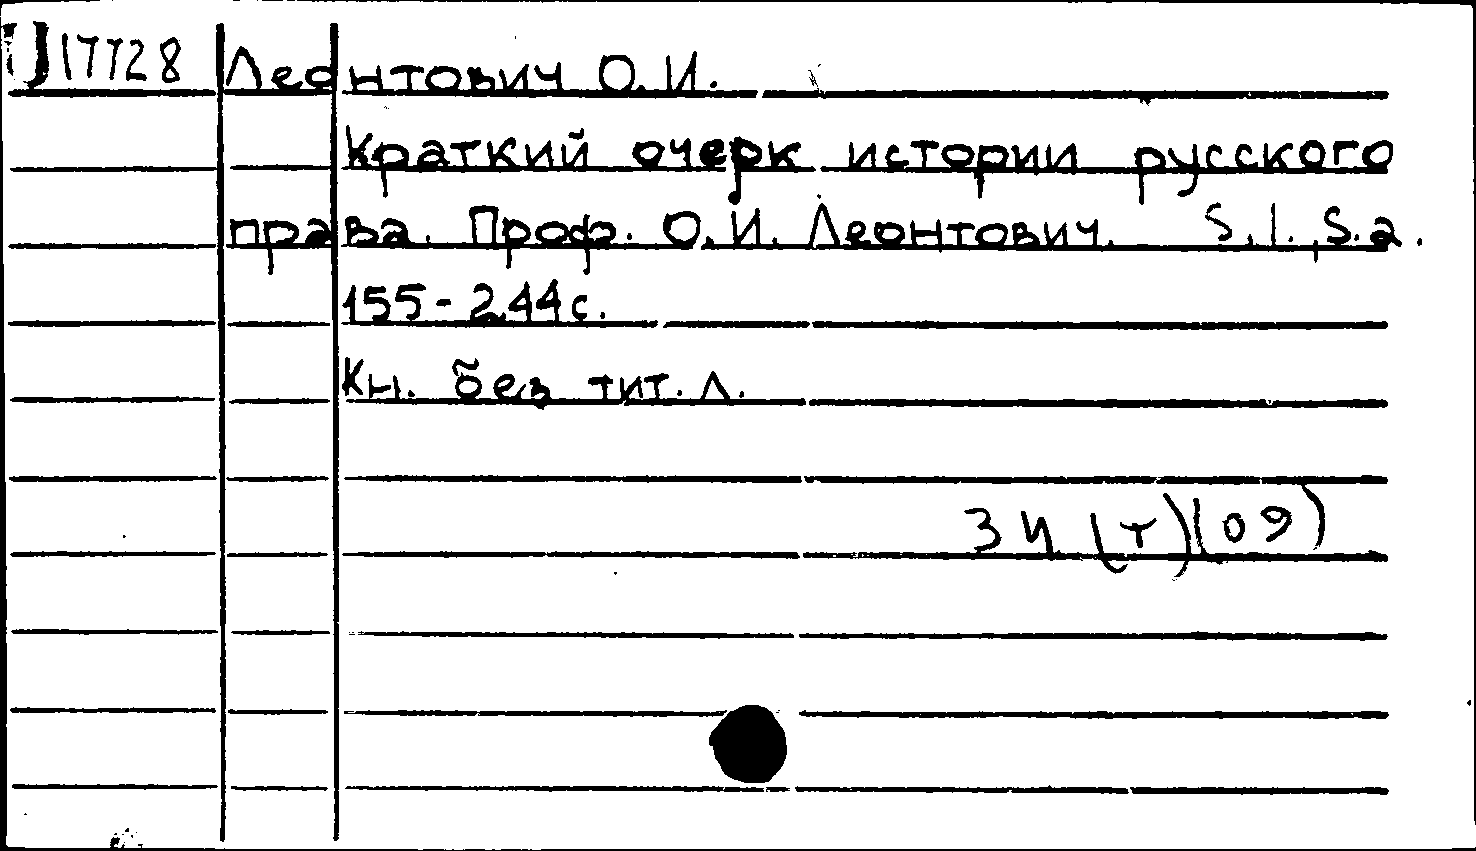 17728 Леонтович О.И.
Краткий очерк истории русского
права. Проф. О.И. Леонтович. S.l., S.a.
155-244 с.
Кн. без тит. л.
3И (Т)(09)